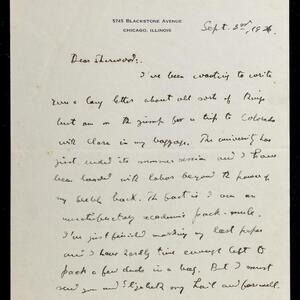 5745 BLACKSTONE AVENUE
CHICAGO, ILLINOIS
Sept. 2nd, 1926.
Dear Sherwood:
I've been wanting to write
you a long letter about all sorts of things
but am on the jump for a trip to Colorado
with in my baggage. The university has
just ended its summer session and I have
been loaded with labors beyond the power of
my back. The fact is I am an
unsatisfactory academic pack-mule.
I've just finished marking my last paper
and I have hardly time enough left to
pack a few duds in a bag. But I must
send you and Elizabeth my hail and farewell.